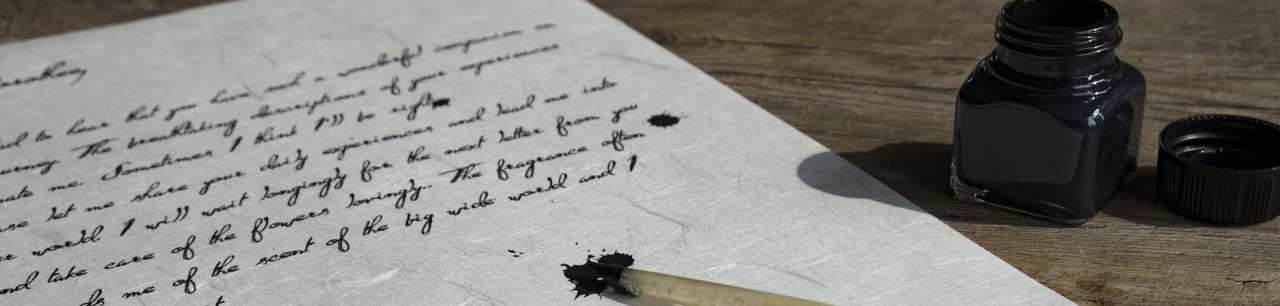 hear that you have such a wonderful companion on
The breathtaking descriptions of your experiences
me. Sometimes I think I'll be right
let me share your daily experiences and lead me into
world I will wait longingly for the next letter from you
and take care of the flowers lovingly. The fragrance often
me of the scent of the big wide world and I